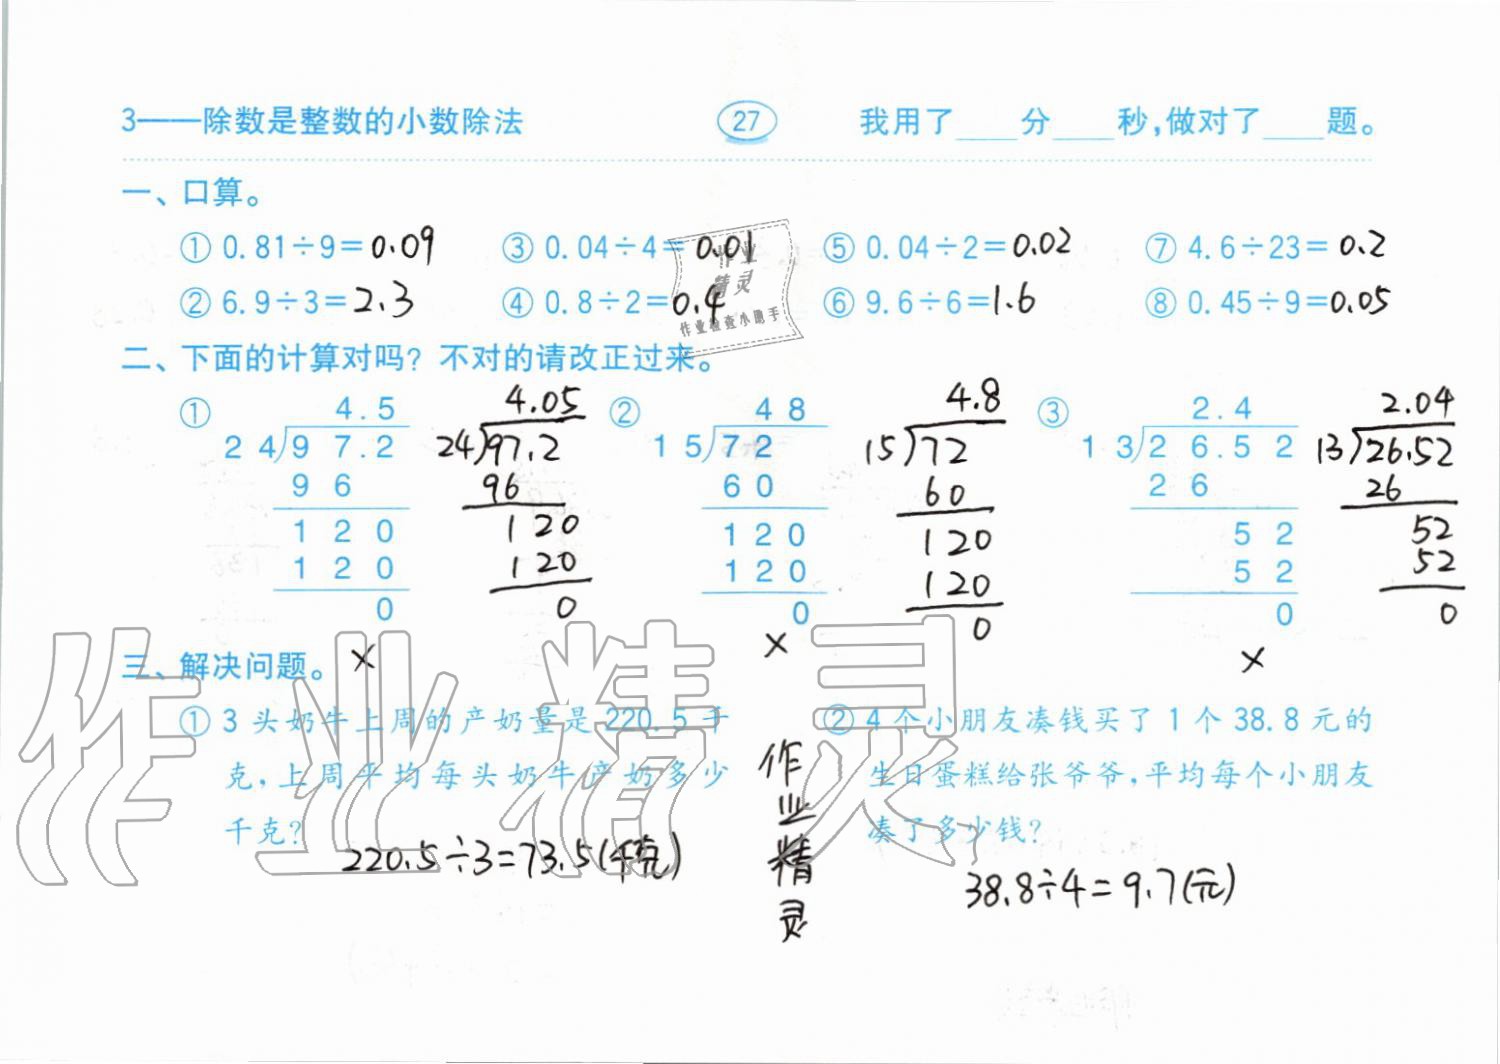 3——除数是整数的小数除法 27 我用了____分____秒,做对了____题。
一、口算。
① 0.81÷9=0.09 ③ 0.04÷4=0.01 ⑤ 0.04÷2=0.02 ⑦ 4.6÷23=0.2
② 6.9÷3=2.3 ④ 0.8÷2=0.4 ⑥ 9.6÷6=1.6 ⑧ 0.45÷9=0.05
作业
精灵
作业检查小助手
二、下面的计算对吗?不对的请改正过来。
① 4.5 4.05 ② 48 4.8 ③ 2.4 2.04
24)97.2 24)97.2 15)72 15)72 13)26.52 13)26.52
96 96 60 60 26 26
120 120 120 120 52 52
120 120 120 120 52 52
0 0 0 0 0 0
× × ×
三、解决问题。
① 3头奶牛上周的产奶量是220.5千
克,上周平均每头奶牛产奶多少
千克?
220.5÷3=73.5(千克)
② 4个小朋友凑钱买了1个38.8元的
生日蛋糕给张爷爷,平均每个小朋友
凑了多少钱?
38.8÷4=9.7(元)
作业精灵
作业精灵